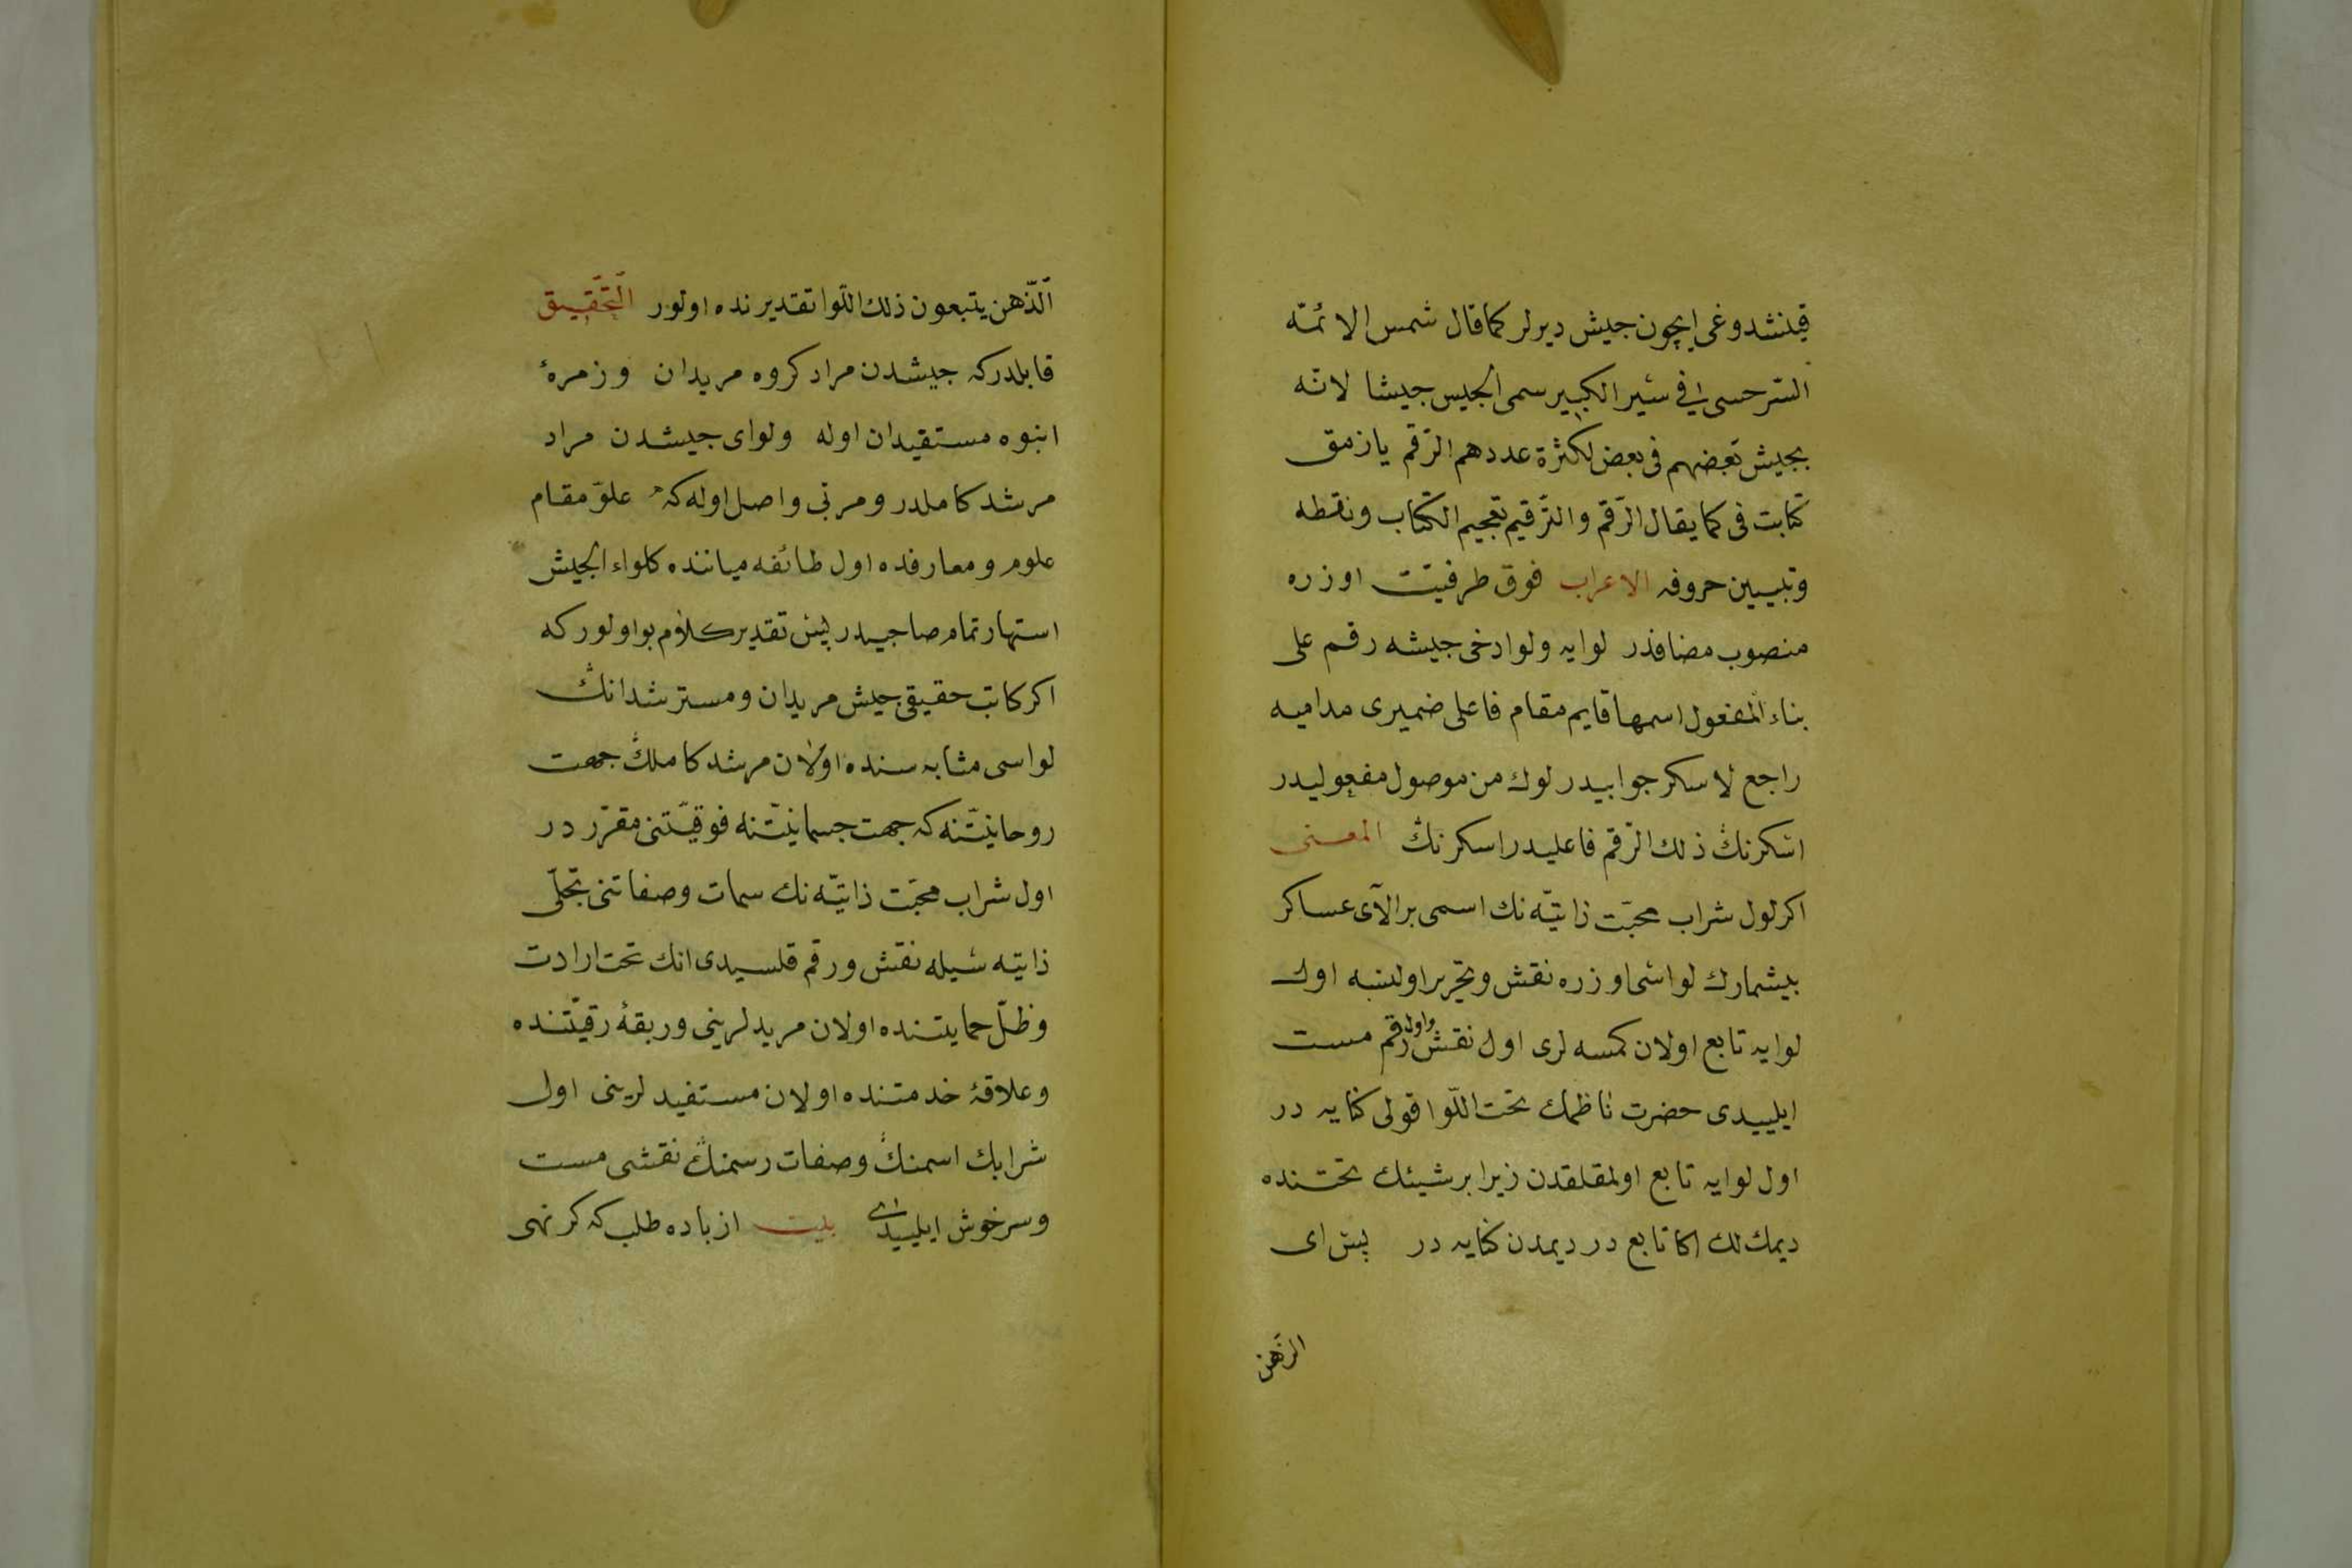 قینشدوغی ایچون جیش دیرلر کما قال شمس الائمّه
السّرحسی فی سیر الکبیر سمی الجیس جیشا لانّه
یجیش بعضهم فی بعض لکثرة عددهم الرّقم یازمق
کتابت فی کما یقال الرّقم والترّقیم تعجیم الکتاب ونقطه
وتبیین حروفه الاعراب فوق ظرفیّت اوزره
منصوب مضافدر لوایه ولوا دخی جیشه رقم علی
بناء المفعول اسمها قایم مقام فاعلی ضمیری مدامیه
راجع لاسکر جوابیدر لوک من موصول مفعولیدر
اسکرنڭ ذلك الرّقم فاعلیدر اسکرنڭ المعنی
اکر اول شراب محبّت ذاتیّه نك اسمی بر الآی عساکر
بیشمارك لواسی اوزره نقش وتحریر اولنسه اول
لوایه تابع اولان کمسه لری اول نقش واول رقم مست
ایلییدی حضرت ناظمك تحت اللّوا قولی کنایه در
اول لوایه تابع اولمقلقدن زیرا بر شیئك تحتنده
دیمك لك اکا تابع در دیمدن کنایه در پس ای
الذّهن
الّذهن یتبعون ذلك اللّوا تقدیرنده اولور التّحقیق
قابلدرکه جیشدن مراد کروه مریدان وزمرۀ
انبوه مستقیدان اوله ولوای جیشدن مراد
مرشد کاملدر ومربّی واصل اوله که علوّ مقام
علوم ومعارفده اول طائفه میاننده کلواء الجیش
استهار تمام صاحبیدر پس تقدیر کلام بو اولور که
اکر کاتب حقیقی جیش مریدان ومسترشدانڭ
لواسی مثابه سنده اولان مرشد کاملڭ جهت
روحانیّتنه که جهت جسمانیّتنه فوقیّتی مقرّر در
اول شراب محبّت ذاتیّه نك سمات وصفاتنی تجلّی
ذاتیّه سیله نقش ورقم قلسیدی انك تحت ارادت
وظلّ حمایتنده اولان مریدلرینی وربقۀ رقیّتنده
وعلاقۀ خدمتنده اولان مستفیدلرینی اول
شرابك اسمنڭ وصفات رسمنڭ نقشی مست
وسرخوش ایلییدی بیت از باده طلب که کر نهی